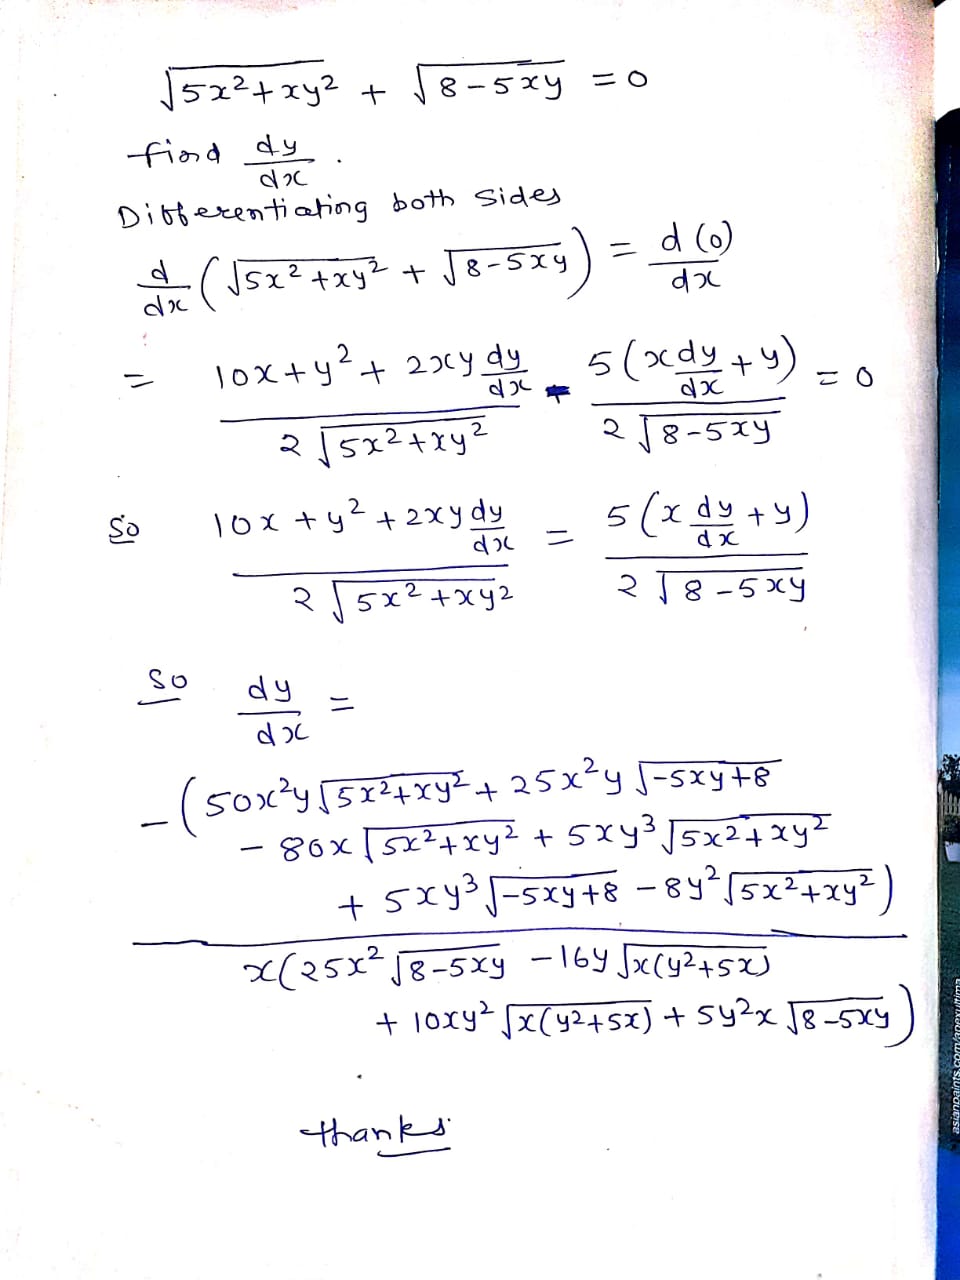 √(5x²+xy²) + √(8-5xy) = 0
find dy/dx .
Differentiating both sides
d/dx (√(5x²+xy²) + √(8-5xy)) = d(0)/dx
= (10x+y²+2xy dy/dx)/(2√(5x²+xy²)) - 5(x dy/dx + y)/(2√(8-5xy)) = 0
So (10x+y²+2xy dy/dx)/(2√(5x²+xy²)) = 5(x dy/dx + y)/(2√(8-5xy))
So dy/dx =
-(50x²y√(5x²+xy²) + 25x²y√(-5xy+8)
- 80x√(5x²+xy²) + 5xy³√(5x²+xy²)
+ 5xy³√(-5xy+8) - 8y²√(5x²+xy²))
x(25x²√(8-5xy) - 16y√(x(y²+5x))
+ 10xy²√(x(y²+5x)) + 5y²x√(8-5xy))
thanks
asianpaints.com/apexultima